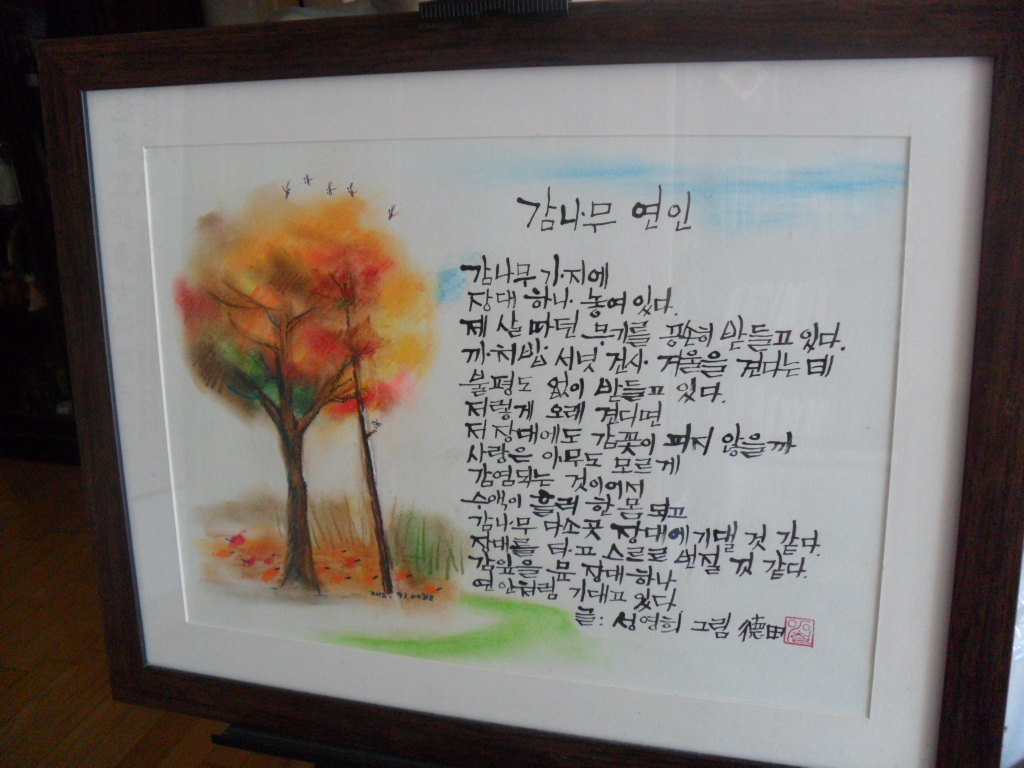 감나무 연인
감나무 가지에
장대 하나 놓여 있다.
제 살 따던 무기를 평온히 받들고 있다.
까치밥 서넛 건사 겨울을 견디는데
불평도 없이 받들고 있다.
저렇게 오래 견디면
저 장대에도 감꽃이 피지 않을까
사랑은 아무도 모르게
감염되는 것이어서
수액이 흘러 한 몸 되고
감나무 다소곳 장대에 기댈 것 같다.
장대를 타고 스르르 번질 것 같다.
감잎을 문 장대 하나
연인처럼 기대고 있다
글: 성영희 그림 德田